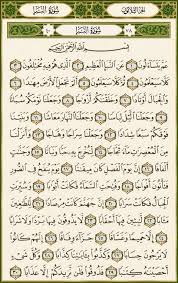 الجزء الثلاثون سورة النبأ
سورة النبأ
بِسْمِ اللَّهِ الرَّحْمَٰنِ الرَّحِيمِ
عَمَّ يَتَسَاءَلُونَ ١ عَنِ النَّبَإِ الْعَظِيمِ ٢ الَّذِي هُمْ فِيهِ مُخْتَلِفُونَ ٣
كَلَّا سَيَعْلَمُونَ ٤ ثُمَّ كَلَّا سَيَعْلَمُونَ ٥ أَلَمْ نَجْعَلِ الْأَرْضَ مِهَادًا ٦
وَالْجِبَالَ أَوْتَادًا ٧ وَخَلَقْنَاكُمْ أَزْوَاجًا ٨ وَجَعَلْنَا نَوْمَكُمْ
سُبَاتًا ٩ وَجَعَلْنَا اللَّيْلَ لِبَاسًا ١٠ وَجَعَلْنَا النَّهَارَ مَعَاشًا ١١ وَبَنَيْنَا
فَوْقَكُمْ سَبْعًا شِدَادًا ١٢ وَجَعَلْنَا سِرَاجًا وَهَّاجًا ١٣ وَأَنزَلْنَا
مِنَ الْمُعْصِرَاتِ مَاءً ثَجَّاجًا ١٤ لِّنُخْرِجَ بِهِ حَبًّا وَنَبَاتًا ١٥ وَجَنَّاتٍ
أَلْفَافًا ١٦ إِنَّ يَوْمَ الْفَصْلِ كَانَ مِيقَاتًا ١٧ يَوْمَ يُنفَخُ فِي الصُّورِ
فَتَأْتُونَ أَفْوَاجًا ١٨ وَفُتِحَتِ السَّمَاءُ فَكَانَتْ أَبْوَابًا ١٩
وَسُيِّرَتِ الْجِبَالُ فَكَانَتْ سَرَابًا ٢٠ إِنَّ جَهَنَّمَ كَانَتْ مِرْصَادًا ٢١
لِّلطَّاغِينَ مَآبًا ٢٢ لَّابِثِينَ فِيهَا أَحْقَابًا ٢٣ لَّا يَذُوقُونَ فِيهَا بَرْدًا وَلَا شَرَابًا ٢٤
إِلَّا حَمِيمًا وَغَسَّاقًا ٢٥ جَزَاءً وِفَاقًا ٢٦ إِنَّهُمْ كَانُوا
لَا يَرْجُونَ حِسَابًا ٢٧ وَكَذَّبُوا بِآيَاتِنَا كِذَّابًا ٢٨ وَكُلَّ شَيْءٍ
أَحْصَيْنَاهُ كِتَابًا ٢٩ فَذُوقُوا فَلَن نَّزِيدَكُمْ إِلَّا عَذَابًا ٣٠